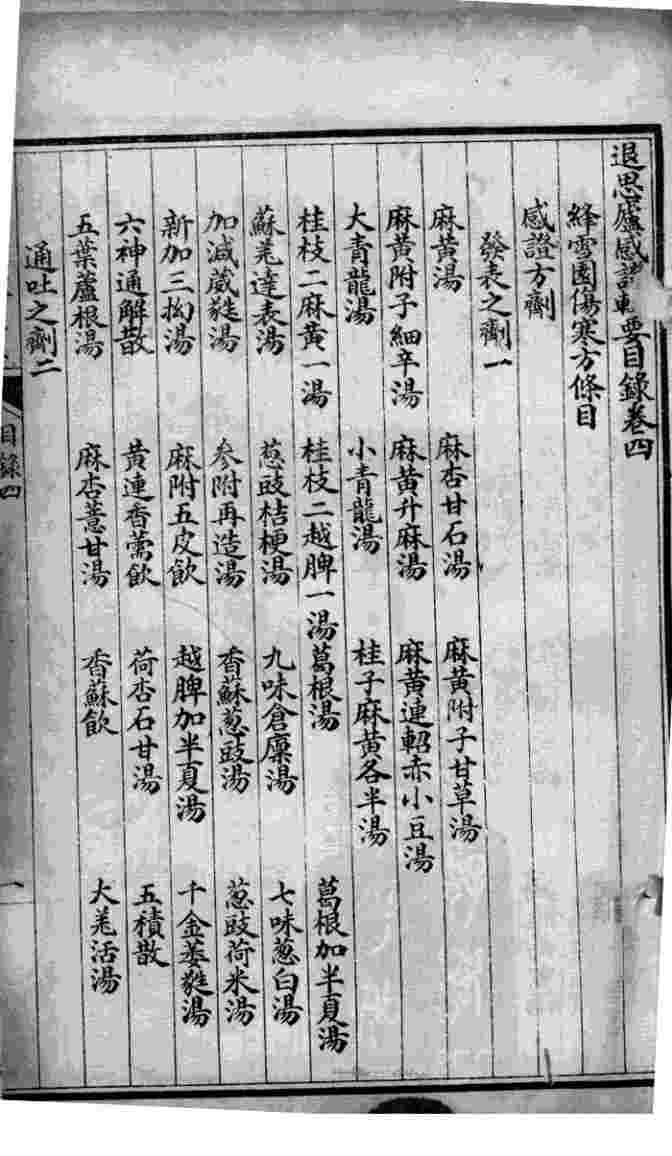 退思廬感證輯要目錄卷四
絳雪園傷寒方條目
感證方劑
發表之劑一
麻黃湯 麻杏甘石湯 麻黃附子甘草湯
麻黃附子細辛湯 麻黃升麻湯 麻黃連軺赤小豆湯
大青龍湯 小青龍湯 桂子麻黃各半湯
桂枝二麻黃一湯 桂枝二越脾一湯 葛根湯 葛根加半夏湯
蘇羌達表湯 葱豉桔梗湯 九味倉廩湯 七味葱白湯
加減葳蕤湯 參附再造湯 香蘇葱豉湯 葱豉荷米湯
新加三拗湯 麻附五皮飲 越脾加半夏湯 千金萎蕤湯
六神通解散 黃連香薷飲 荷杏石甘湯 五積散
五葉蘆根湯 麻杏薏甘湯 香蘇飲 大羌活湯
通吐之劑二
目錄四
一